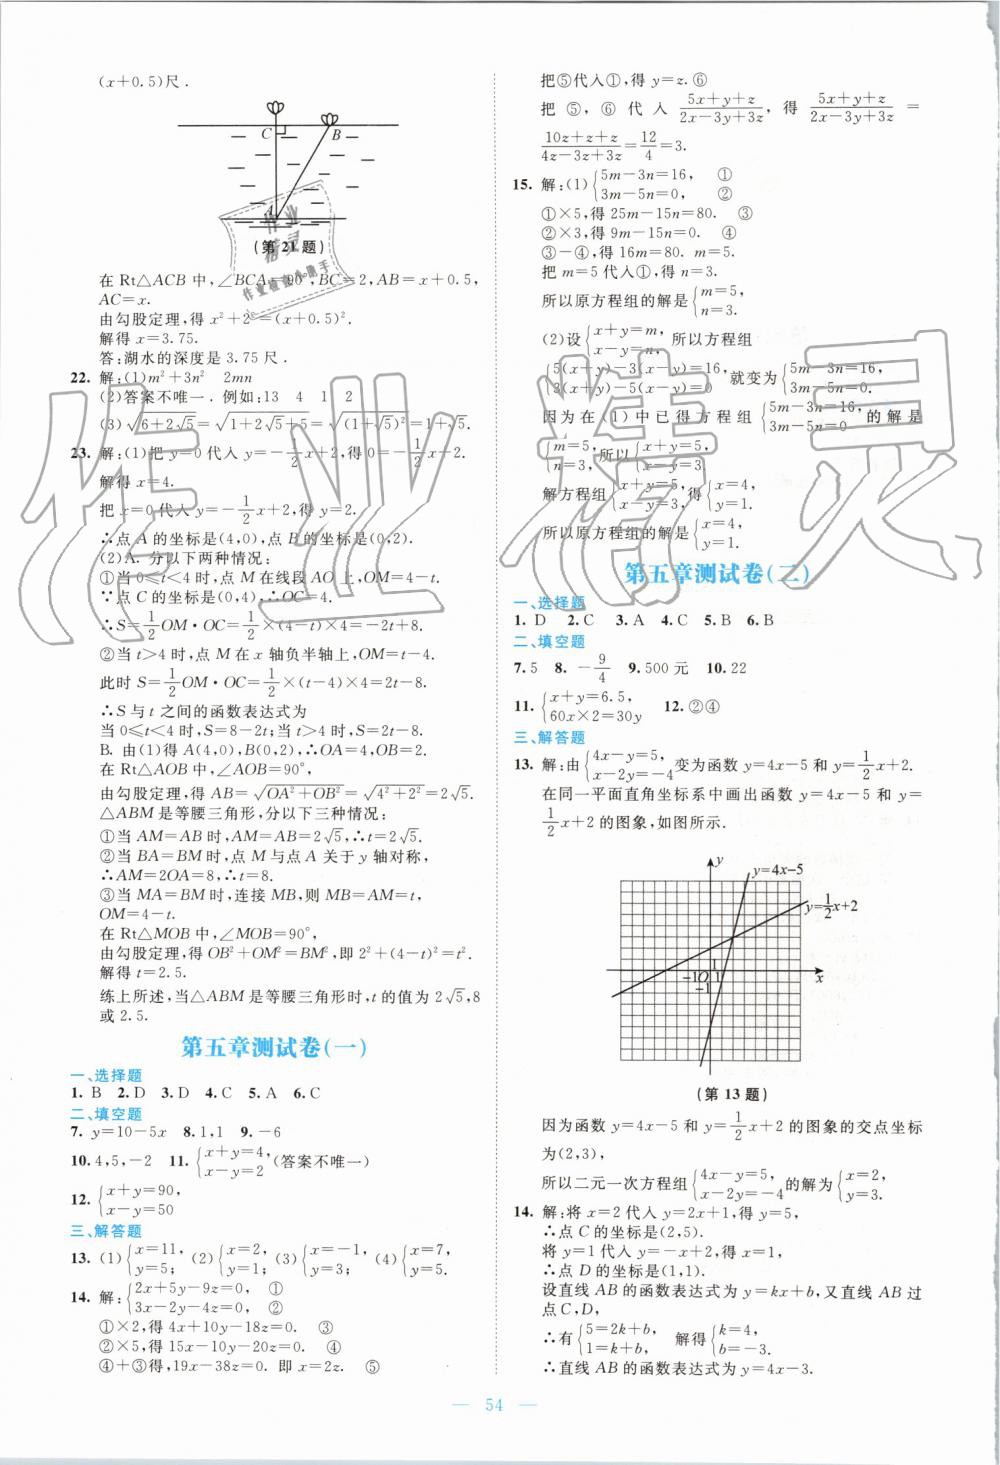 (x+0.5)尺.
C
B
A
(第21题)
在Rt△ACB中,∠BCA=90°,BC=2,AB=x+0.5,
AC=x.
由勾股定理,得x²+2²=(x+0.5)².
解得x=3.75.
答:湖水的深度是3.75尺.
22. 解:(1)m²+3n² 2mn
(2)答案不唯一.例如:13 4 1 2
(3)√(6+2√5)=√(1+2√5+5)=√((1+√5)²)=1+√5.
23. 解:(1)把y=0代入y=-1/2x+2,得0=-1/2x+2.
解得x=4.
把x=0代入y=-1/2x+2,得y=2.
∴点A的坐标是(4,0),点B的坐标是(0,2).
(2)A.分以下两种情况:
①当0≤t<4时,点M在线段AO上,OM=4-t.
∵点C的坐标是(0,4),∴OC=4.
∴S=1/2OM·OC=1/2×(4-t)×4=8-2t.
②当t>4时,点M在x轴负半轴上,OM=t-4.
此时S=1/2OM·OC=1/2×(t-4)×4=2t-8.
∴S与t之间的函数表达式为
当0≤t<4时,S=8-2t;当t>4时,S=2t-8.
B. 由(1)得A(4,0),B(0,2),∴OA=4,OB=2.
在Rt△AOB中,∠AOB=90°,
由勾股定理,得AB=√(OA²+OB²)=√(4²+2²)=2√5.
△ABM是等腰三角形,分以下三种情况:
①当AM=AB时,AM=AB=2√5,∴t=2√5.
②当BA=BM时,点M与点A关于y轴对称,
∴AM=2OA=8,∴t=8.
③当MA=BM时,连接MB,则MB=AM=t,
OM=4-t.
在Rt△MOB中,∠MOB=90°,
由勾股定理,得OB²+OM²=BM²,即2²+(4-t)²=t².
解得t=2.5.
综上所述,当△ABM是等腰三角形时,t的值为2√5,8
或2.5.
第五章测试卷(一)
一、选择题
1. B 2. D 3. D 4. C 5. A 6. C
二、填空题
7. y=10-5x 8. 1,1 9. -6
10. 4,5,-2 11. {x+y=4, x-y=2(答案不唯一)
12. {x+y=90, x-y=50
三、解答题
13. (1){x=11, y=5; (2){x=2, y=1; (3){x=-1, y=3; (4){x=7, y=5.
14. 解:{2x+5y-9z=0, ① 3x-2y-4z=0, ②
①×2,得4x+10y-18z=0. ③
②×5,得15x-10y-20z=0. ④
④+③得,19x-38z=0. 即x=2z. ⑤
把⑤代入①,得y=z. ⑥
把⑤,⑥代入(5x+y+z)/(2x-3y+3z),得(5x+y+z)/(2x-3y+3z)=
(10z+z+z)/(4z-3z+3z)=12/4=3.
15. 解:(1){5m-3n=16, ① 3m-5n=0, ②
①×5,得25m-15n=80. ③
②×3,得9m-15n=0. ④
③-④,得16m=80. m=5.
把m=5代入,得n=3.
所以原方程组的解是{m=5, n=3.
(2)设{x+y=m, x-y=n,所以方程组
{5(x+y)-3(x-y)=16, 3(x+y)-5(x-y)=0,就变为{5m-3n=16, 3m-5n=0.
因为在(1)中已得方程组{5m-3n=16, 3m-5n=0的解是
{m=5, n=3,所以{x+y=5, x-y=3.
解方程组{x+y=5, x-y=3,得{x=4, y=1.
所以原方程组的解是{x=4, y=1.
第五章测试卷(二)
一、选择题
1. D 2. C 3. A 4. C 5. B 6. B
二、填空题
7. 5 8. -9/4 9. 500元 10. 22
11. {x+y=6.5, 60x×2=30y 12. ②④
三、解答题
13. 解:由{4x-y=5, x-2y=-4变为函数y=4x-5和y=1/2x+2.
在同一平面直角坐标系中画出函数y=4x-5和y=
1/2x+2的图象,如图所示.
y
y=4x-5
y=1/2x+2
1
-1O 1
-1
x
(第13题)
因为函数y=4x-5和y=1/2x+2的图象的交点坐标
为(2,3),
所以二元一次方程组{4x-y=5, x-2y=-4的解为{x=2, y=3.
14. 解:将x=2代入y=2x+1,得y=5,
∴点C的坐标是(2,5).
将y=1代入y=-x+2,得x=1,
∴点D的坐标是(1,1).
设直线AB的函数表达式为y=kx+b,又直线AB过
点C,D,
∴有{5=2k+b, 1=k+b, 解得{k=4, b=-3.
∴直线AB的函数表达式为y=4x-3.
— 54 —
作业精灵
作业精灵
作业检查小助手